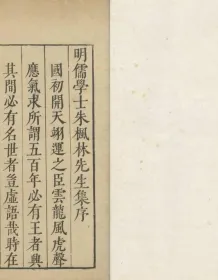 明儒學士朱楓林先生集序
國初開天翊運之臣雲龍風虎聲
應氣求所謂五百年必有王者興
其間必有名世者豈虛語哉時在